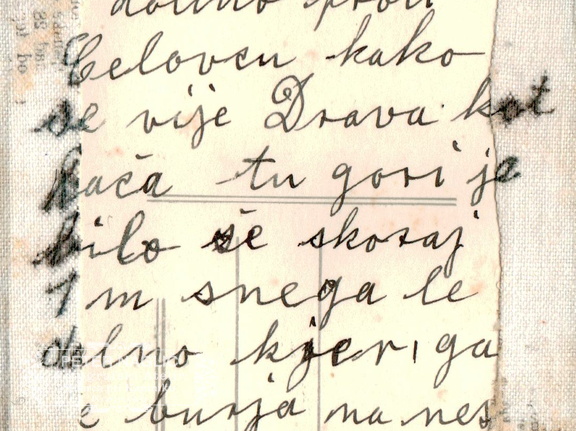 dolino proti
Celovcu kako
se vije Drava kot
kača tu gori je
bilo še skoraj
1 m snega le
delno kjer ga
je burja na nes